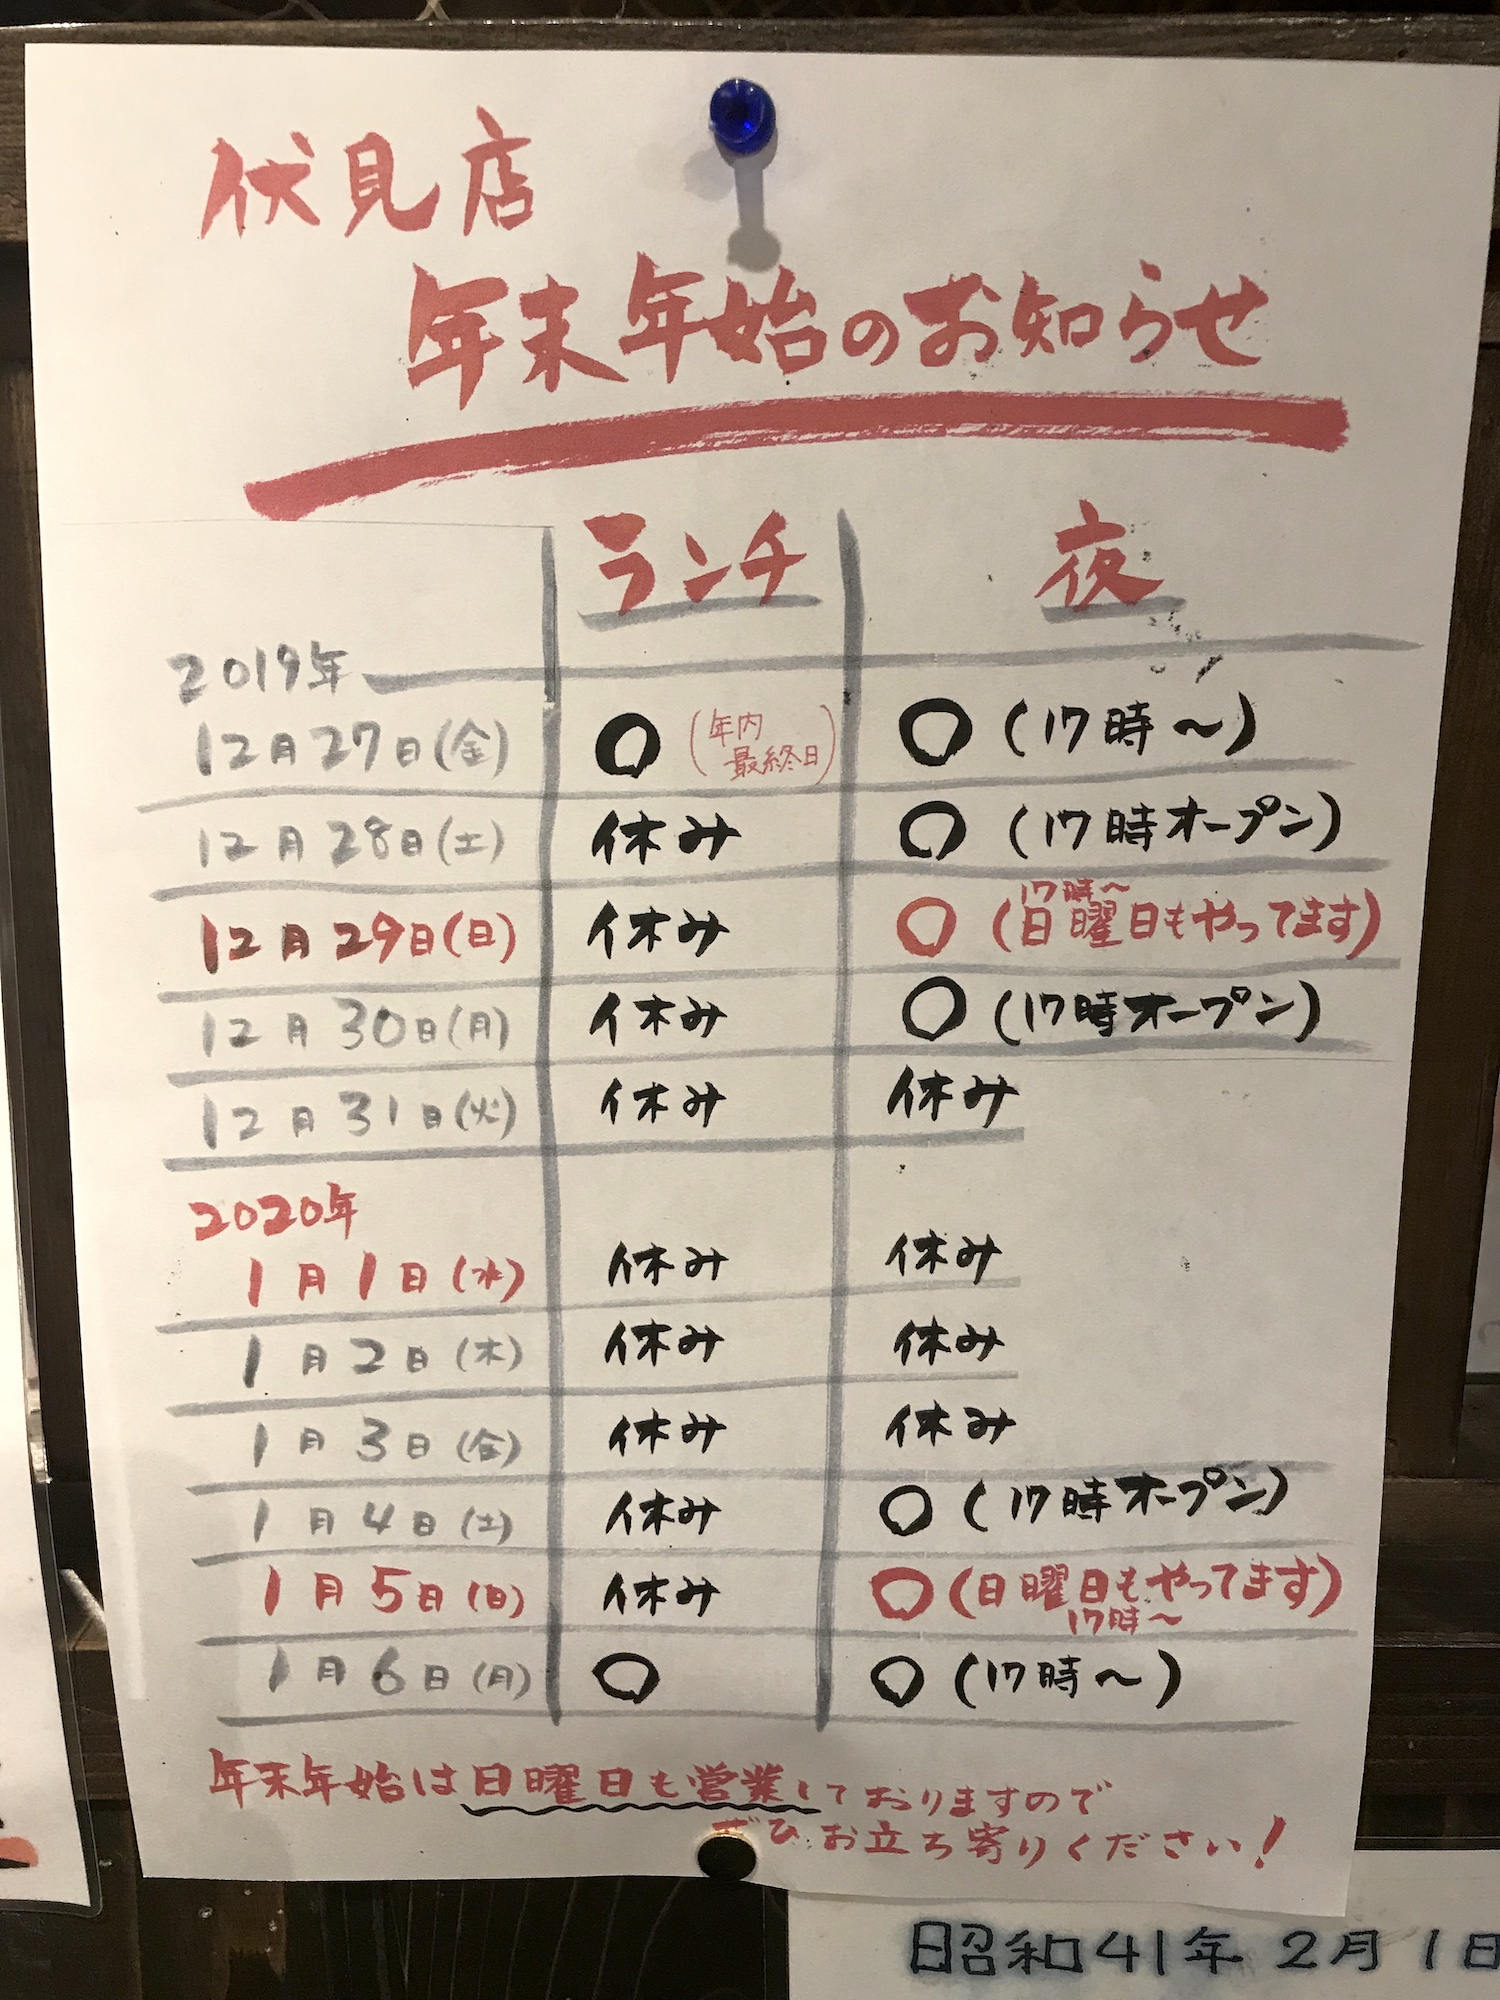 伏見店
年末年始のお知らせ
ランチ 夜
2019年
12月27日(金) ○ (年内最終日) ○ (17時〜)
12月28日(土) 休み ○ (17時オープン)
12月29日(日) 休み ○ (17時〜 日曜日もやってます)
12月30日(月) 休み ○ (17時オープン)
12月31日(火) 休み 休み
2020年
1月1日(水) 休み 休み
1月2日(木) 休み 休み
1月3日(金) 休み 休み
1月4日(土) 休み ○ (17時オープン)
1月5日(日) 休み ○ (日曜日もやってます) 17時〜
1月6日(月) ○ ○ (17時〜)
年末年始は日曜日も営業しておりますので
ぜひお立ち寄りください!
昭和41年2月1日